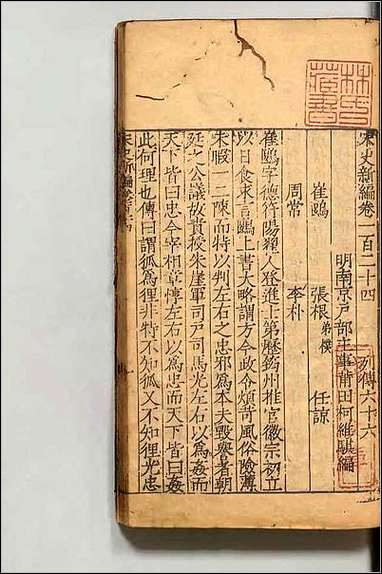 宋史新編卷一百二十四
列傳六十六
明南京戶部主事莆田柯維騏編
崔鶠 張根 弟樸 任諒
周常 李朴
崔鶠字德符陽翟人登進士第歷筠州推官徽宗初立
以日食求言鶠上書大略謂方今政令煩苛風俗險薄
未暇一二陳而特以判左右之忠邪為本夫毀譽者朝
廷之公議故責授朱崖軍司戶司馬光左右以為姦而
天下皆曰忠今宰相章惇左右以為忠而天下皆曰姦
此何理也傳曰謂狐為狸非特不知狐又不知狸光忠
林氏藏書